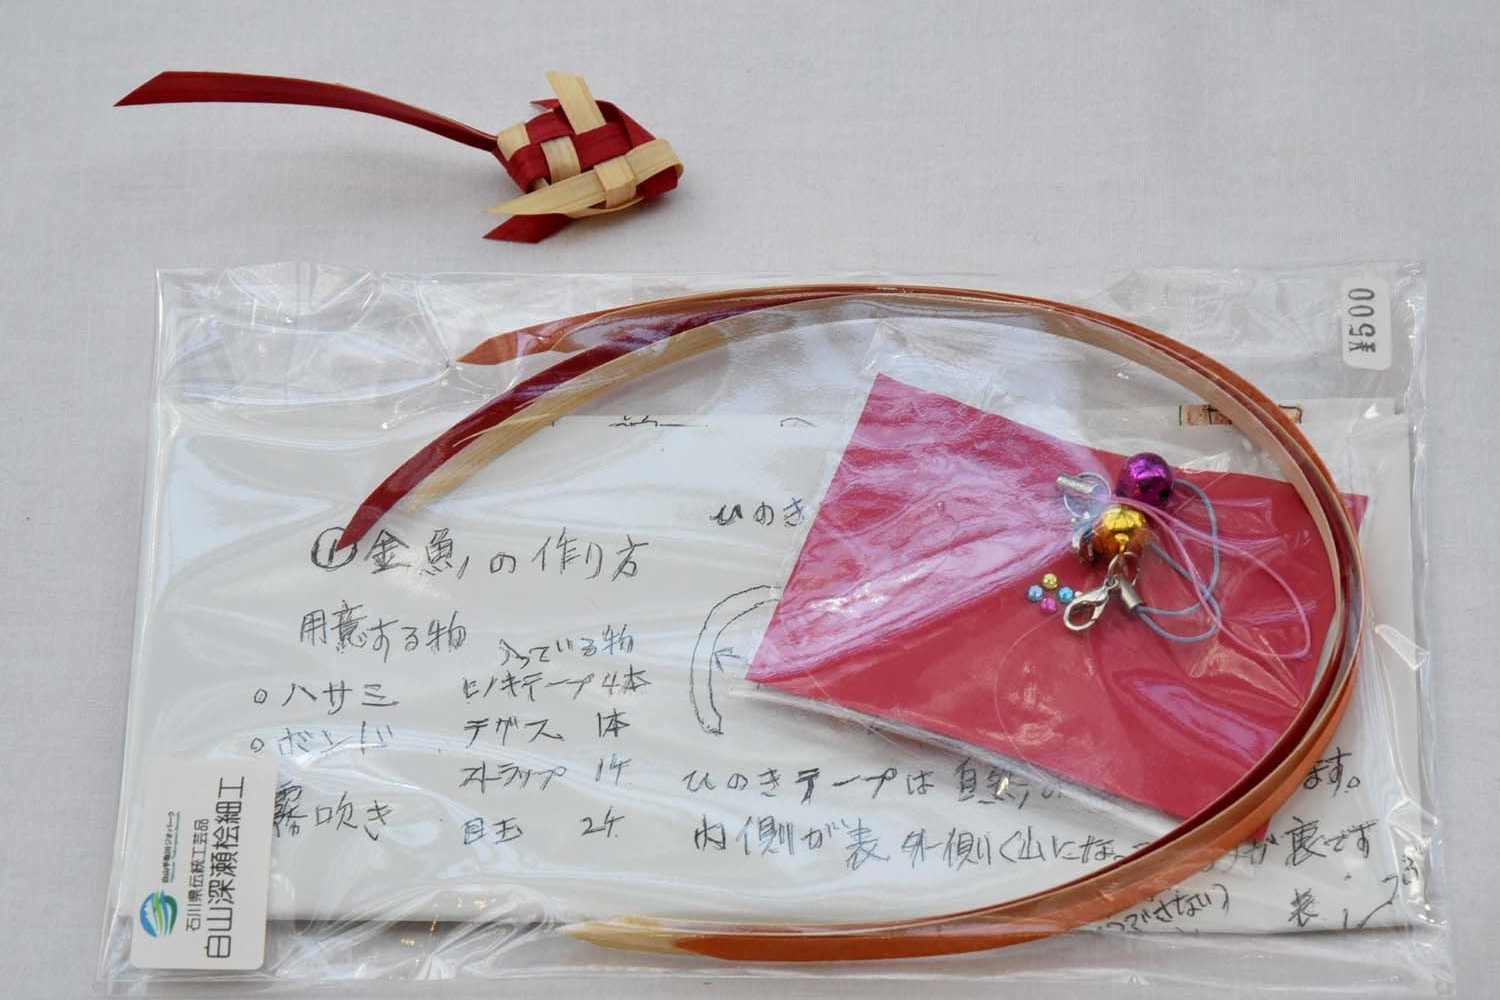 ¥500
ひのき
①金魚の作り方
用意する物
入っている物
○ハサミ
ヒノキテープ4本
○ボンド
テグス 1本
ストラップ 1ケ
霧吹き
目玉 2ケ
ひのきテープは自然
ます。
内側が表 外側
裏です
表
白山手取川ジオパーク
石川県伝統工芸品
白山深瀬桧細工